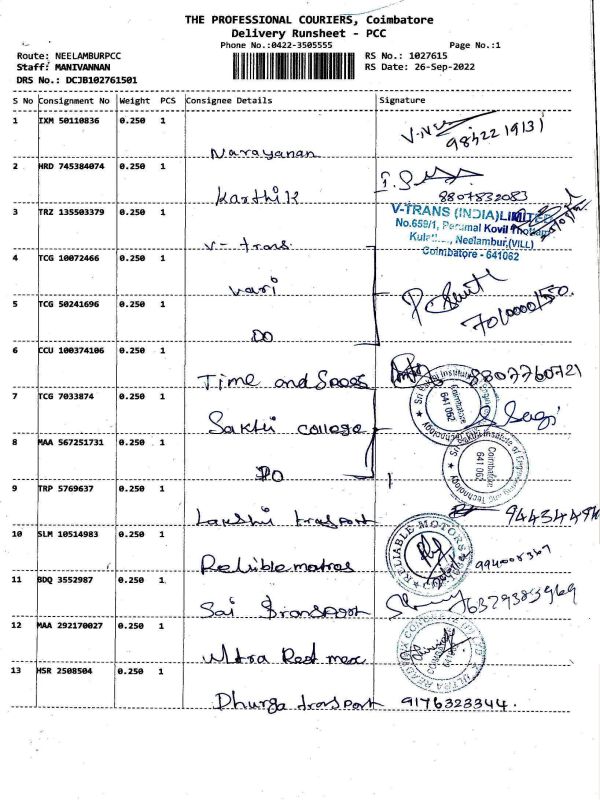 THE PROFESSIONAL COURIERS, Coimbatore
Delivery Runsheet - PCC
Phone No.:0422-3505555
Page No.:1
Route: NEELAMBURPCC
RS No.: 1027615
Staff: MANIVANNAN
RS Date: 26-Sep-2022
DRS No.: DCJB102761501
S No Consignment No Weight PCS Consignee Details Signature
1 IXM 50110836 0.250 1
Narayanan 9842219131
2 HRD 745384074 0.250 1
Karthik 8807832083
3 TRZ 135503379 0.250 1
V-TRANS (INDIA) LIMITED
No.659/1, Perumal Kovil Thottam
V-trans
Neelambur,(VILL)
Coimbatore - 641062
4 TCG 10072466 0.250 1
vari
5 TCG 50241696 0.250 1
DO
6 CCU 100374106 0.250 1
Time and 8807760721
7 TCG 7033874 0.250 1
Sri Sakthi Institute of Engineering and Technology
Coimbatore
641 062
Sakthi college
8 MAA 567251731 0.250 1
Sri Sakthi Institute of Engineering and Technology
Coimbatore
641 062
DO
9 TRP 5769637 0.250 1
Lakshi trasport
10 SLM 10514983 0.250 1
RELIABLE MOTORS
Relible motras
11 BDQ 3552987 0.250 1
Sai transport
12 MAA 292170027 0.250 1
ultra Read mex
13 HSR 2508504 0.250 1
Dhurga transport 9176323344.